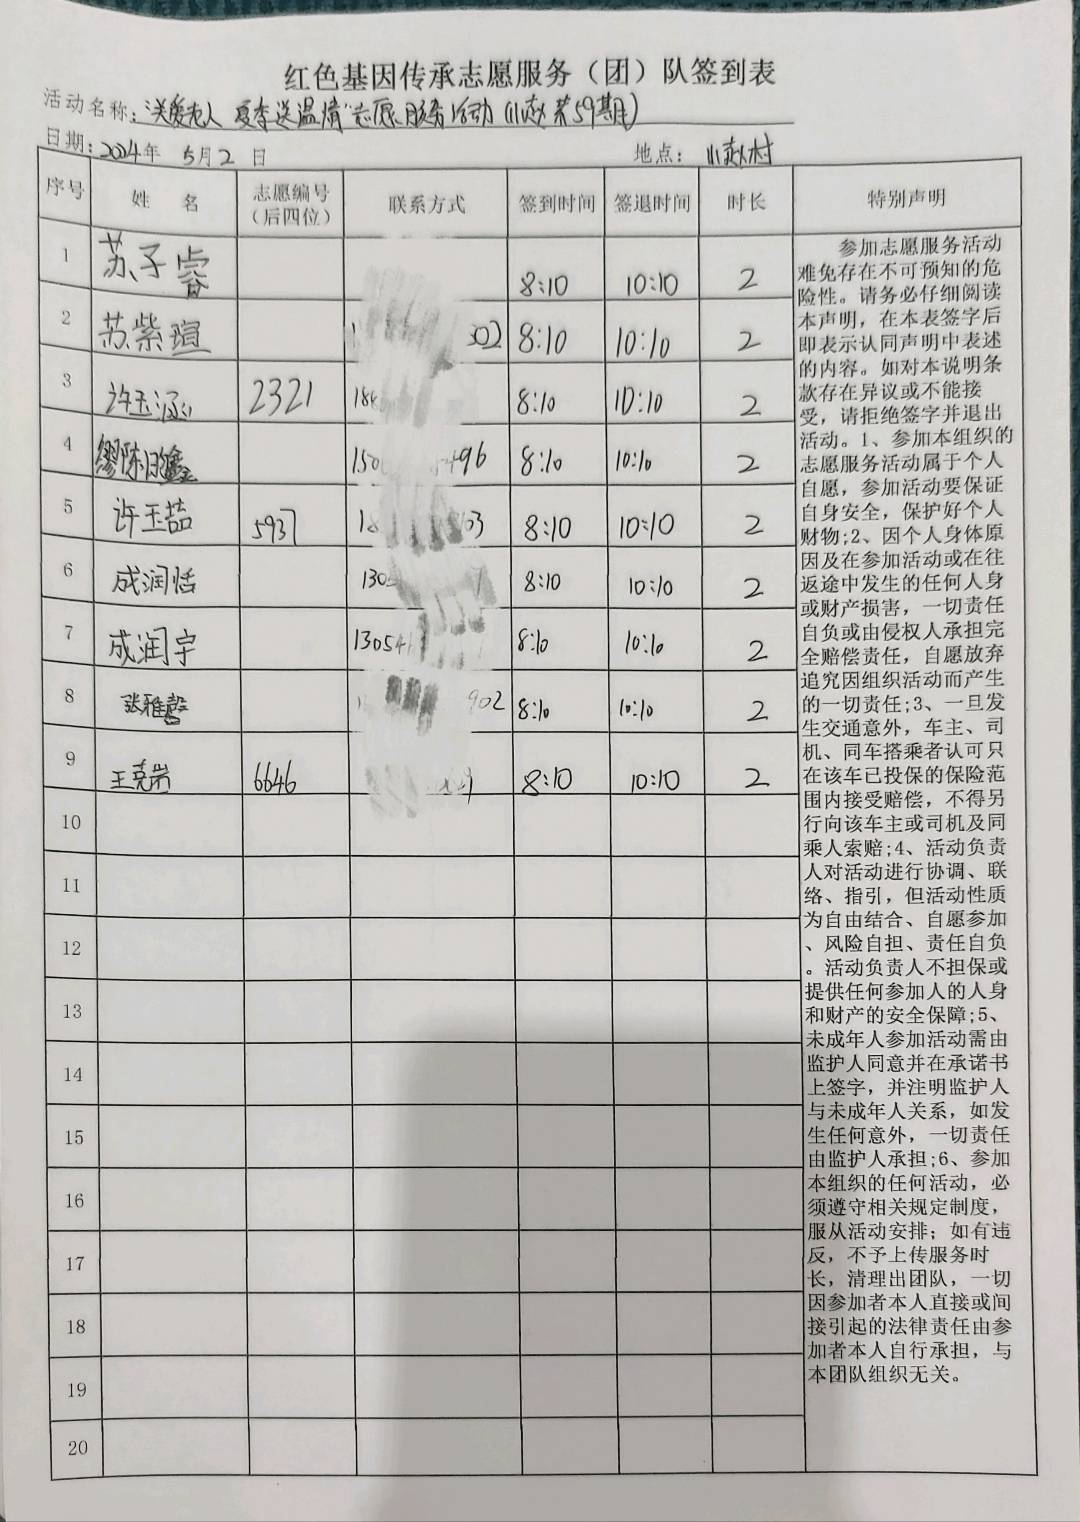 红色基因传承志愿服务（团）队签到表
活动名称：“关爱老人 夏季送温情”志愿服务活动（小赵第59期）
日期：2024年 5月2日 地点：小赵村
序号 姓名 志愿编号（后四位） 联系方式 签到时间 签退时间 时长 特别声明
1 苏子睿 8:10 10:10 2
2 苏紫瑄 302 8:10 10:10 2
3 许玉涵 2321 8:10 10:10 2
4 缪陈 8:10 10:10 2
5 许玉喆 5937 8:10 10:10 2
6 成润恬 130 8:10 10:10 2
7 成润宇 13054 8:10 10:10 2
8 张雅馨 902 8:10 10:10 2
9 王克岩 6646 8:10 10:10 2
10
11
12
13
14
15
16
17
18
19
20
参加志愿服务活动
难免存在不可预知的危
险性。请务必仔细阅读
本声明，在本表签字后
即表示认同声明中表述
的内容。如对本说明条
款存在异议或不能接
受，请拒绝签字并退出
活动。1、参加本组织的
志愿服务活动属于个人
自愿，参加活动要保证
自身安全，保护好个人
财物;2、因个人身体原
因及在参加活动或在往
返途中发生的任何人身
或财产损害，一切责任
自负或由侵权人承担完
全赔偿责任，自愿放弃
追究因组织活动而产生
的一切责任;3、一旦发
生交通意外，车主、司
机、同车搭乘者认可只
在该车已投保的保险范
围内接受赔偿，不得另
行向该车主或司机及同
乘人索赔;4、活动负责
人对活动进行协调、联
络、指引，但活动性质
为自由结合、自愿参加
、风险自担、责任自负
。活动负责人不担保或
提供任何参加人的人身
和财产的安全保障;5、
未成年人参加活动需由
监护人同意并在承诺书
上签字，并注明监护人
与未成年人关系，如发
生任何意外，一切责任
由监护人承担;6、参加
本组织的任何活动，必
须遵守相关规定制度，
服从活动安排；如有违
反，不予上传服务时
长，清理出团队，一切
因参加者本人直接或间
接引起的法律责任由参
加者本人自行承担，与
本团队组织无关。